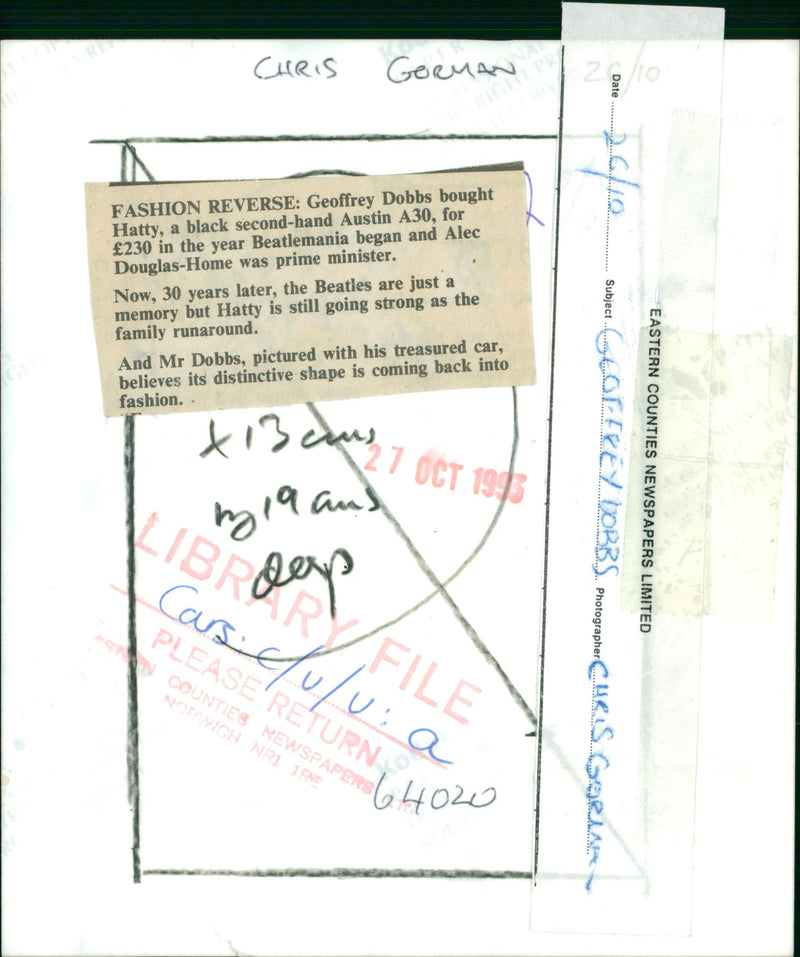 CHRIS GORMAN
26/10
FASHION REVERSE: Geoffrey Dobbs bought
Hatty, a black second-hand Austin A30, for
£230 in the year Beatlemania began and Alec
Douglas-Home was prime minister.
Now, 30 years later, the Beatles are just a
memory but Hatty is still going strong as the
family runaround.
And Mr Dobbs, pictured with his treasured car,
believes its distinctive shape is coming back into
fashion.
x 13 cms
by 19 cms
deep
27 OCT 1993
LIBRARY FILE
Cars: c/u/u: a
PLEASE RETURN
COUNTIES NEWSPAPERS
NORWICH NR1 1RE
64020
EASTERN COUNTIES NEWSPAPERS LIMITED
Date 26/10 Subject GEOFFREY DOBBS Photographer CHRIS GORMAN